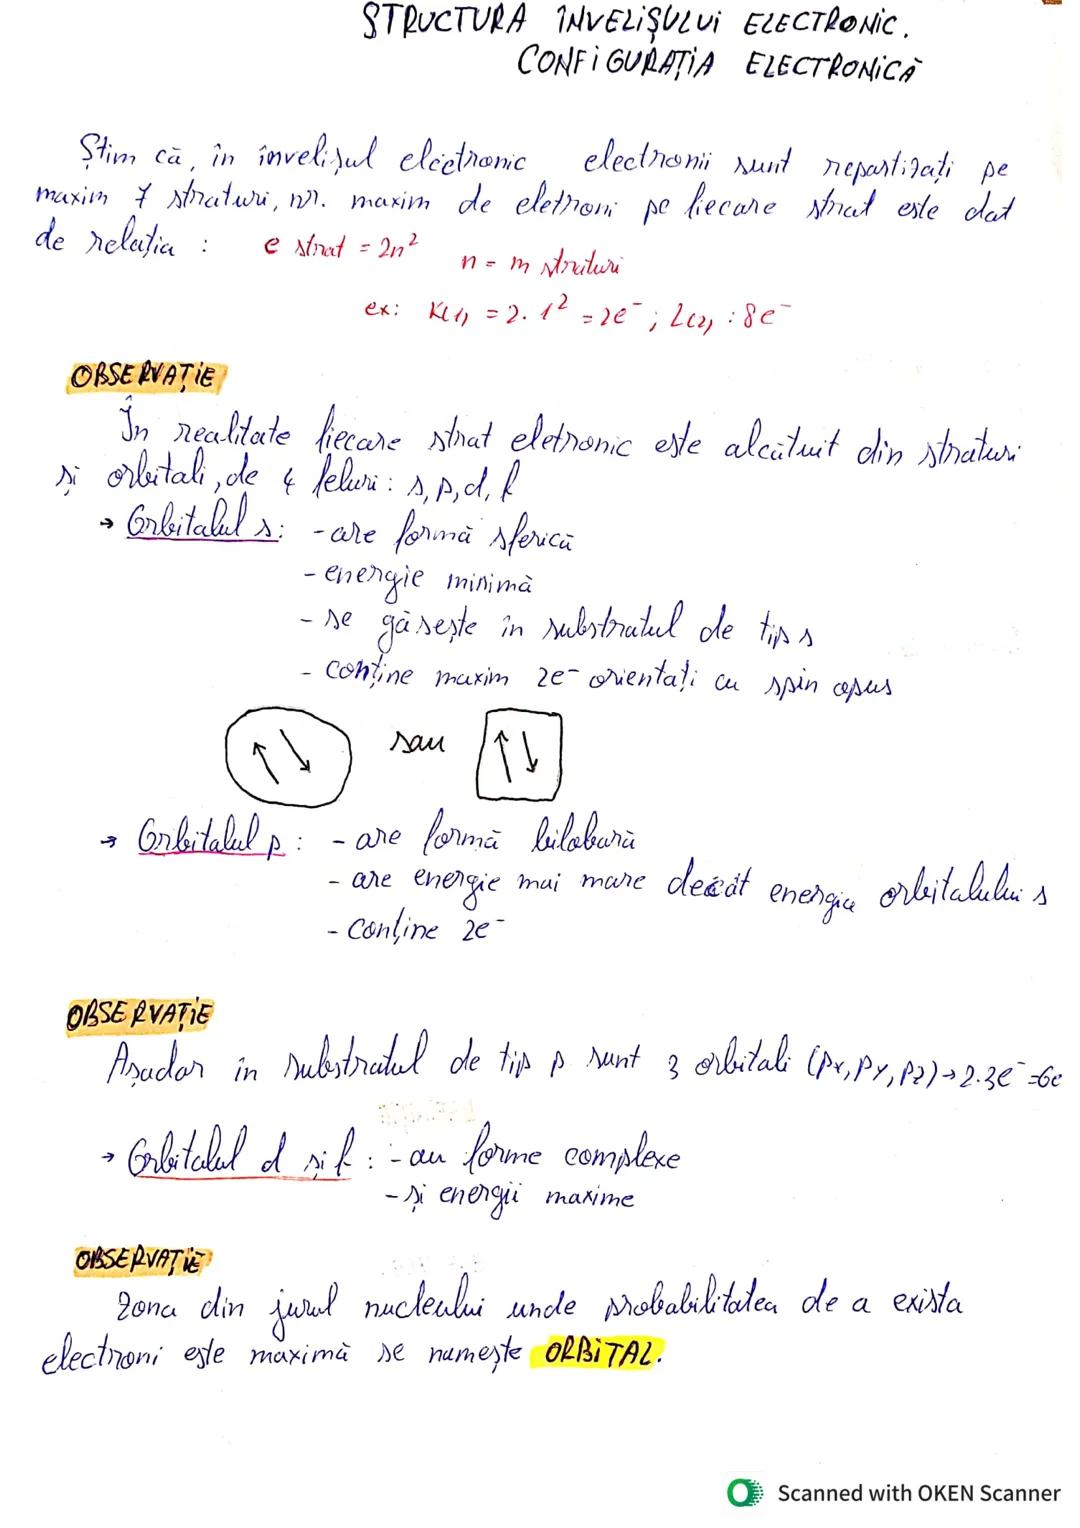 STRUCTURA ÎNVELIŞULUI ELECTRONIC.
CONFIGURAŢIA ELECTRONICĂ
Ştim că, în învelişul electronic electronii sunt repartizaţi pe
maxim 7 straturi, nr. maxim de eletroni pe fiecare strat este dat
de relaţia : e strat = 2n²
n = m straturi
ex: K(1) = 2.1² = 2e⁻ ; L(2) : 8e⁻
OBSERVAŢIE
În realitate fiecare strat eletronic este alcătuit din straturi
şi orbitali, de 4 feluri : s, p, d, f
→ Orbitalul s: - are formă sferică
- energie minimă
- se găseşte în substratul de tip s
- conţine maxim 2e⁻ orientaţi cu spin opus
↑↓ sau ↑↓
→ Orbitalul p : - are formă bilobară
- are energie mai mare decât energia orbitalului s
- Conţine 2e⁻
OBSERVAŢIE
Aşadar în substratul de tip p sunt 3 orbitali (Px, Py, Pz) → 2.3e⁻ = 6e
→ Orbitalul d şi f : - au forme complexe
- şi energii maxime
OBSERVAŢIE
Zona din jurul nucleului unde probabilitatea de a exista
electroni este maximă se numeşte ORBITAL.
Scanned with OKEN Scanner